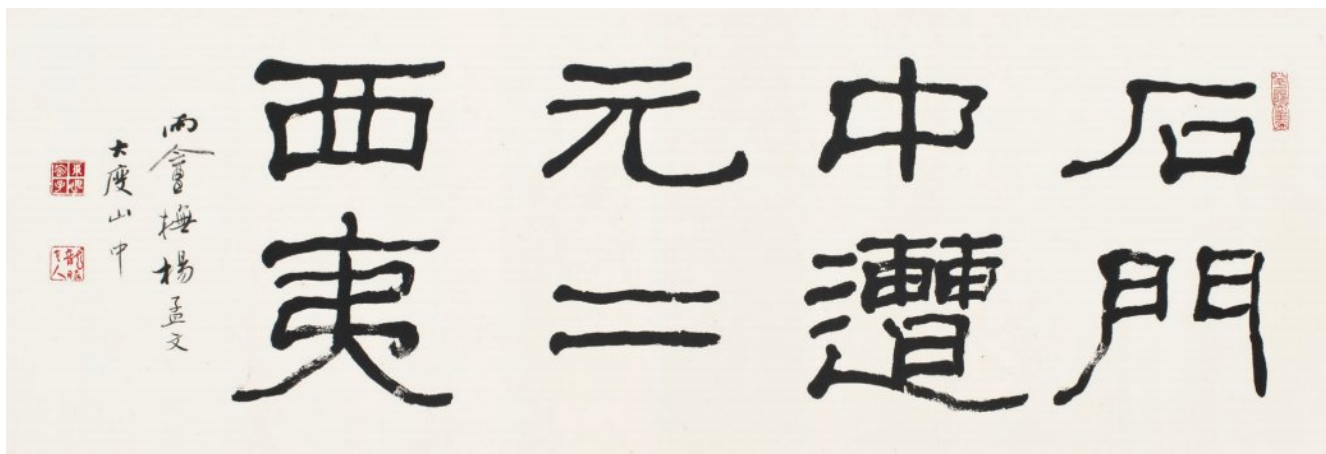 石門
中遭
元二
西夷
雨盦橅楊孟文
大度山中